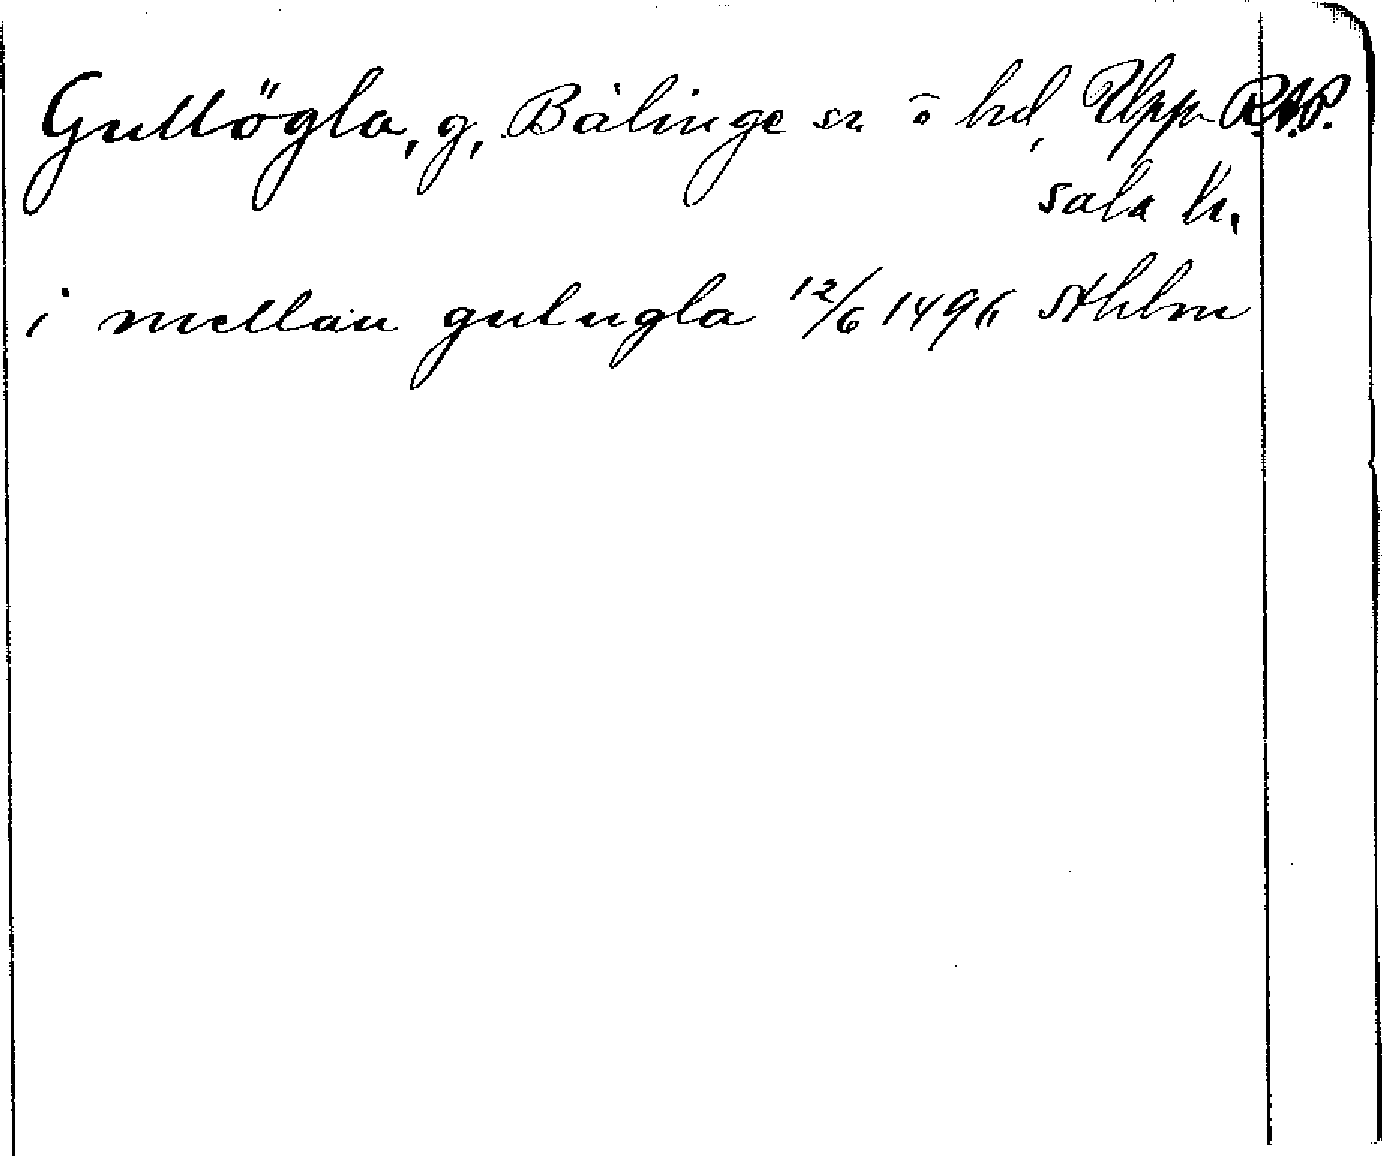 Gullögla, g, Bälinge sn o hd, Upp- RAP.
sala l.
i mellan gulugla 12/6 1496 Sthlm